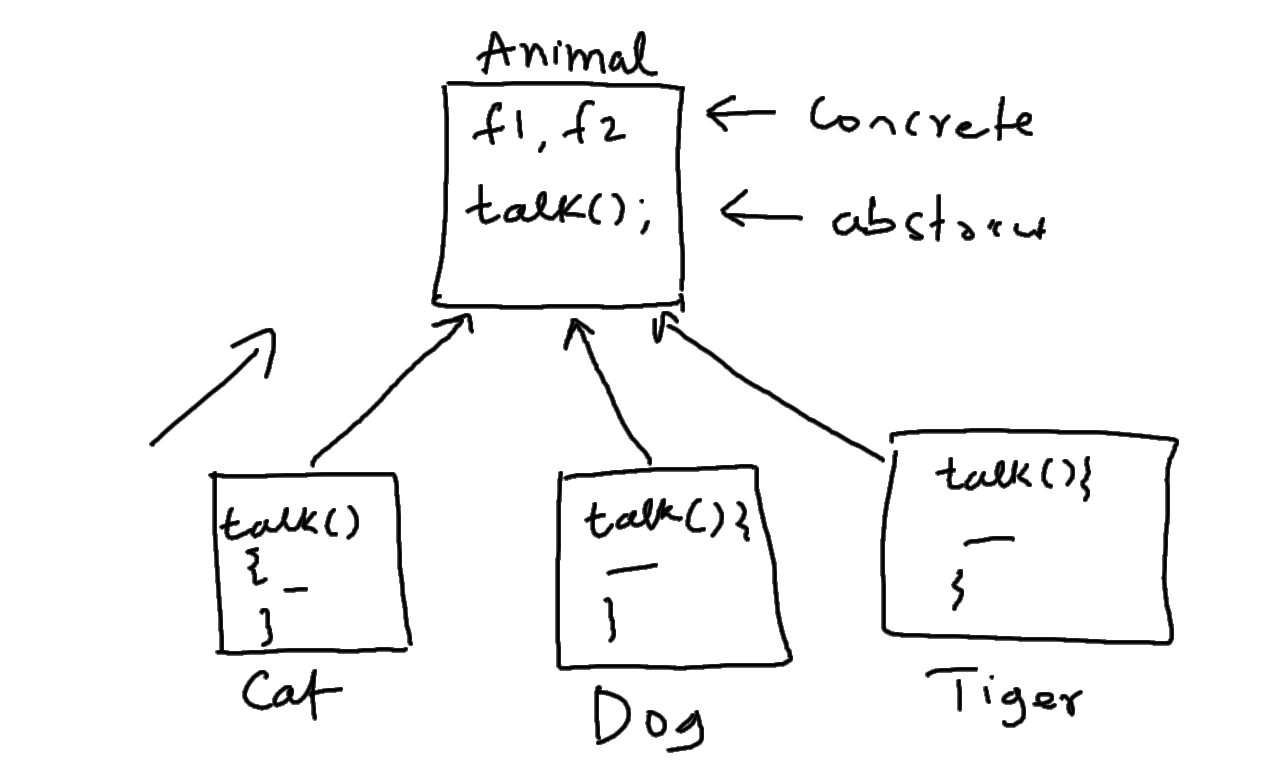 Animal
f1, f2
← Concrete
talk();
←
talk()
{
_
}
Cat
talk(){
—
}
Dog
talk(){
—
}
Tiger